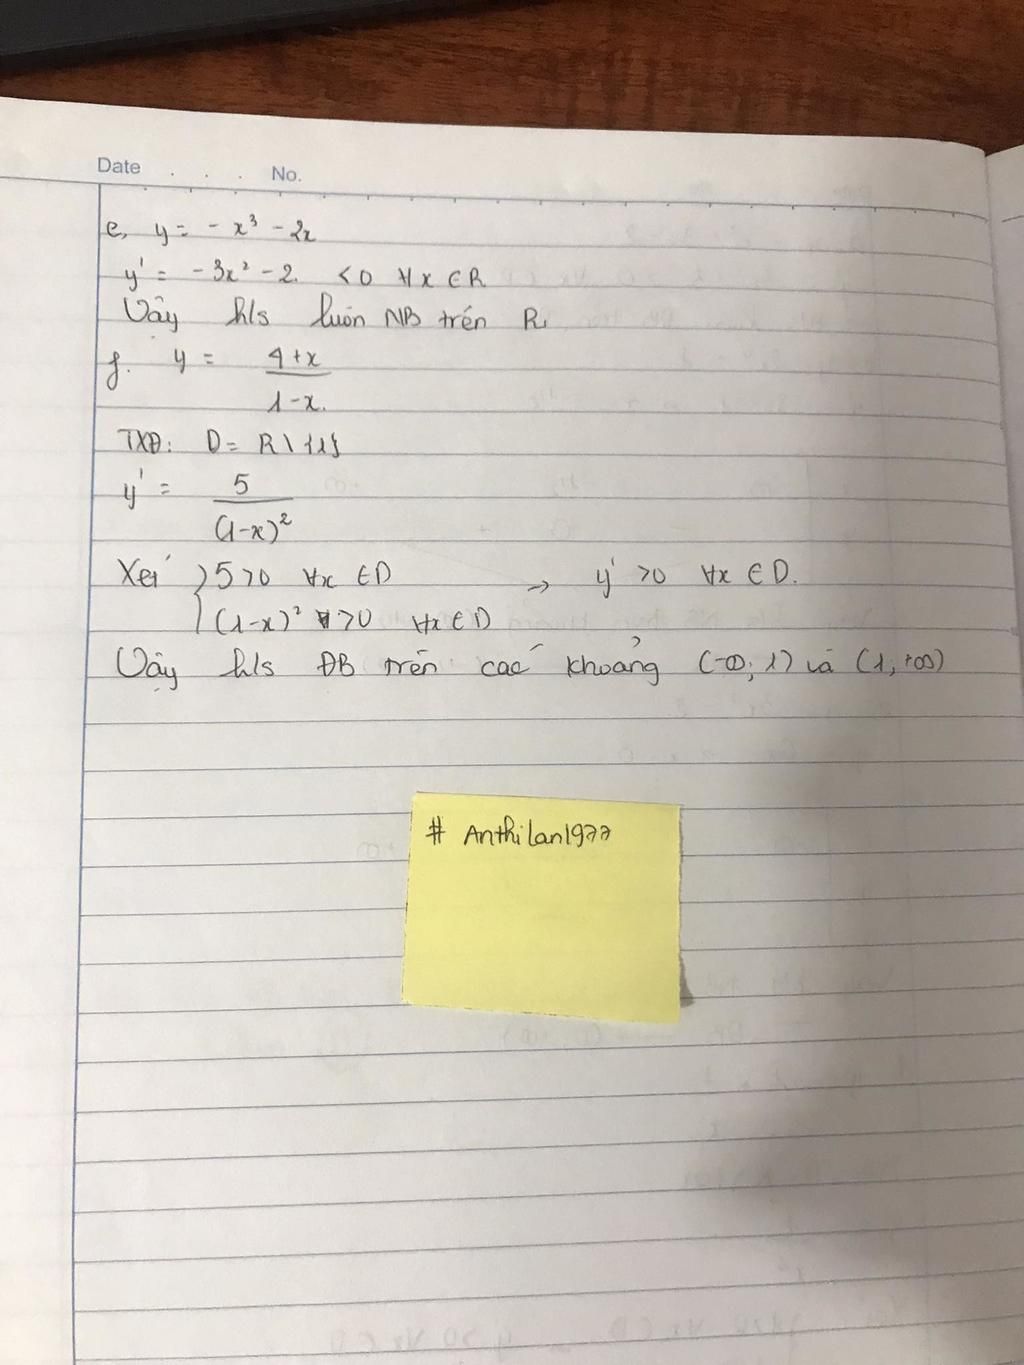 Date . . . No.
e, y = - x³ - 2x
y' = - 3x² - 2. < 0 ∀x ∈ R
Vậy hls luôn NB trên R.
f. y = \frac{4+x}{1-x.}
TXĐ: D = R \ {1}
y' = \frac{5}{(1-x)²}
Xét { 5 > 0 ∀x ∈ D → y' > 0 ∀x ∈ D.
(1-x)² > 0 ∀x ∈ D
Vậy hls ĐB trên các khoảng (-∞; 1) và (1, +∞)
# Anthilan1977